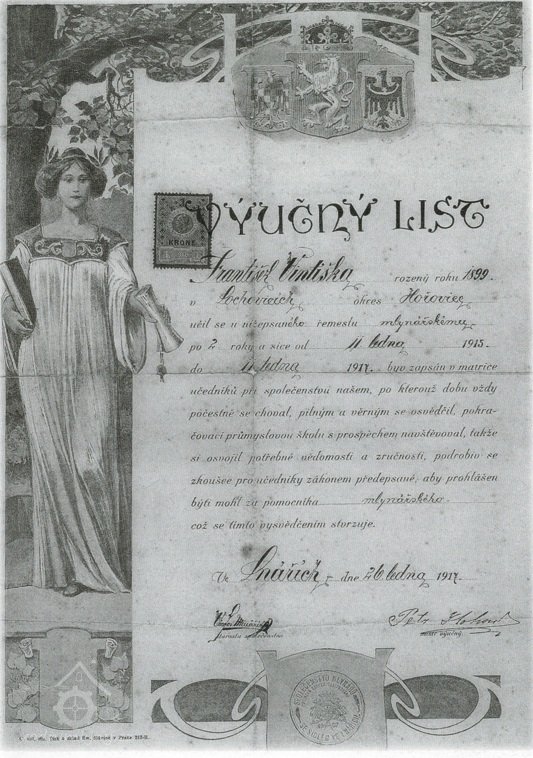 KRONE
VÝUČNÝ LIST
František Vintiška rozený roku 1899.
v Lochovicích okres Hořovice
učil se u nížepsaného řemeslu mlynářskému
po 2 roky a sice od 11 ledna 1915.
do 11 ledna 1917. byv zapsán v matrice
učedníků při společenstvu našem, po kterouž dobu vždy
počestně se choval, pilným a věrným se osvědčil, pokra-
čovací průmyslovou školu s prospěchem navštěvoval, takže
si osvojil potřebné vědomosti a zručnosti, podrobiv se
zkoušce pro učedníky zákonem předepsané, aby prohlášen
býti mohl za pomocníka mlynářského.
což se tímto vysvědčením stvrzuje.
Ve Lnářích dne 26 ledna 1917.
Petr
mistr výučný.